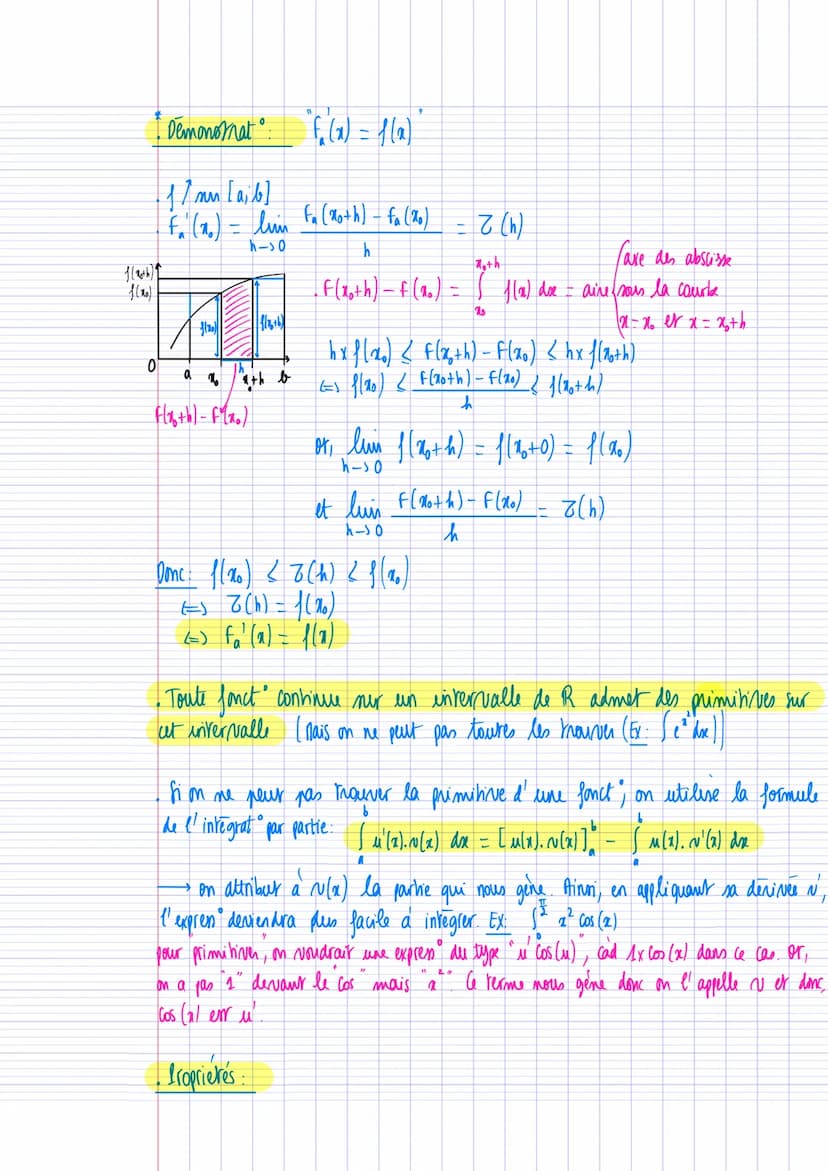 * . Démonstrat° : "Fₐ'(x) = f(x)"
. f ↗ sur [a;b]
. Fₐ'(x₀) = lim h→0 (Fₐ(x₀+h) - Fₐ(x₀)) / h = τ(h)
f(x₀+h)
f(x₀)
f(x₀)
f(x₀+h)
h
0 a x₀ x₀+h b
F(x₀+h) - F(x₀)
. F(x₀+h) - F(x₀) = ∫ₓ₀^(x₀+h) f(x) dx = aire { axe des abscisse
sous la courbe
x = x₀ et x = x₀+h
h x f(x₀) ≤ F(x₀+h) - F(x₀) ≤ h x f(x₀+h)
⇔ f(x₀) ≤ (F(x₀+h) - F(x₀)) / h ≤ f(x₀+h)
or, lim h→0 f(x₀+h) = f(x₀+0) = f(x₀)
et lim h→0 (F(x₀+h) - F(x₀)) / h = τ(h)
Donc : f(x₀) ≤ τ(h) ≤ f(x₀)
⇔ τ(h) = f(x₀)
⇔ Fₐ'(x) = f(x)
. Toute fonct° continue sur un intervalle de R admet des primitives sur
cet intervalle (Mais on ne peut pas toutes les trouver (Ex : ∫eˣ² dx))
. Si on ne peut pas trouver la primitive d'une fonct°, on utilise la formule
de l'intégrat° par partie : ∫ₐᵇ u'(x).v(x) dx = [u(x).v(x)]ₐᵇ - ∫ₐᵇ u(x).v'(x) dx
→ on attribut à v(x) la partie qui nous gêne. Ainsi, en appliquant sa dérivée v',
l'express° deviendra plus facile à intégrer. Ex : ∫₀^(π/2) x² cos(x)
pour "primitiver", on voudrait une express° du type "u' cos(u)", càd 1x cos(x) dans ce cas. Or,
on a pas "1" devant le "cos" mais "x²". Ce terme nous gêne donc on l'appelle v et donc,
cos(x) est u'.
. Propriétés :